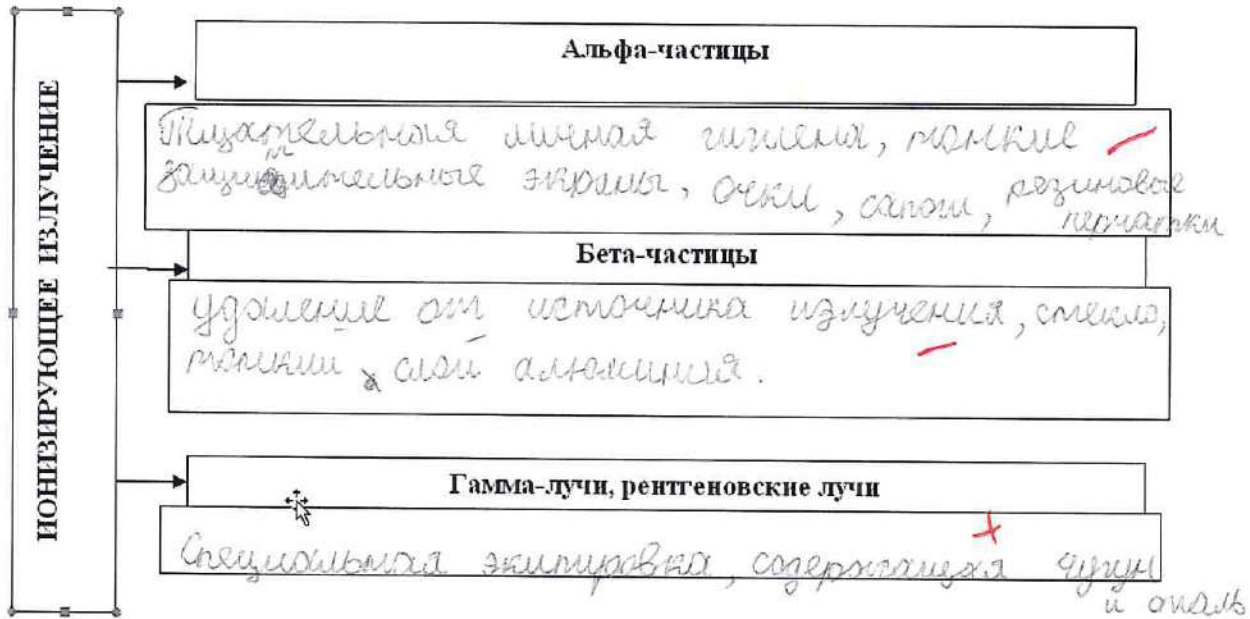 ИОНИЗИРУЮЩЕЕ ИЗЛУЧЕНИЕ
Альфа-частицы
Тщательная личная гигиена, тонкие
защитительные экраны, очки, сапоги, резиновые
перчатки
Бета-частицы
удаление от источника излучения, стекло,
тонкий слой алюминия.
Гамма-лучи, рентгеновские лучи
Специальная экипировка, содержащая чугун
и сталь